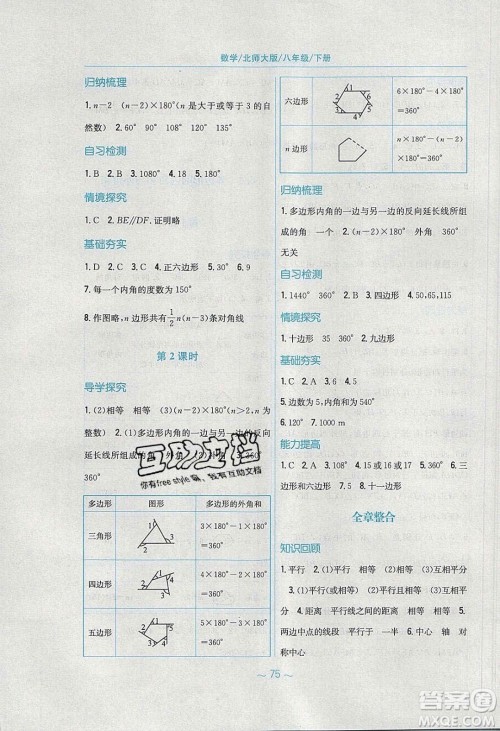 数学/北师大版/八年级/下册
归纳梳理
1. n-2 (n-2)×180°(n 是大于或等于 3 的自
然数) 2. 60° 90° 108° 120° 135°
自习检测
1. B 2. B 3. 1080° 4. 1820 5. 180°
情境探究
1. C 2. BE//DF. 证明略
基础夯实
1. D 2. C 3. C 4. 正六边形 5. 30° 6. 9
7. 每一个内角的度数为 150°
8. 作图略, n 边形共有1/2 n(n-3)条对角线
第 2 课时
导学探究
1. (2)相等 相等 (3)(n-2)×180°(n>2,n 为
整数) 2. (1)多边形内角的一边与另一边的反
向延长线所组成的角 外角
互助文档
你有free style 嘛, 我有互助文档
多边形 图形 多边形的外角和
三角形 1 2 3 3×180°-1×180°=360°
四边形 4×180°-2×180°=360°
五边形 1 2 3 4 5 5×180°-3×180°=360°
六边形 1 2 3 4 5 6 6×180°-4×180°=360°
n 边形 n×180°-(n-2)×180°=360°
归纳梳理
1. 多边形内角的一边与另一边的反向延长线所组
成的角 一个 (n-2)×180° 外角 360°
无关
自习检测
1. 1440° 360° 2. B 3. 四边形 4. 50,65,115
情境探究
1. 十边形 35 360° 2. 十二边形
基础夯实
1. C 2. A 3. 6 4. 5
5. 边数为 5, 每个内角为 108°
6. 120° 7. 1000 m
能力提高
1. C 2. A 3. 108 4. 15 或 16 或 17 5. 360°
6. 360° 7. 八边形 8. 十一边形
全章整合
知识回顾
1. 平行 2. (1)平行 (2)相等 (3)相等 (4)互相
平分 3. (1)平行 (2)相等 (3)相等 (4)互相平
分 4. 距离 平行线之间的距离 相等 相等 5.
两边中点的线段 平行于 一半 6. 中心 轴 对
称中心
～ 75 ～
作业精灵
MXQE.COM